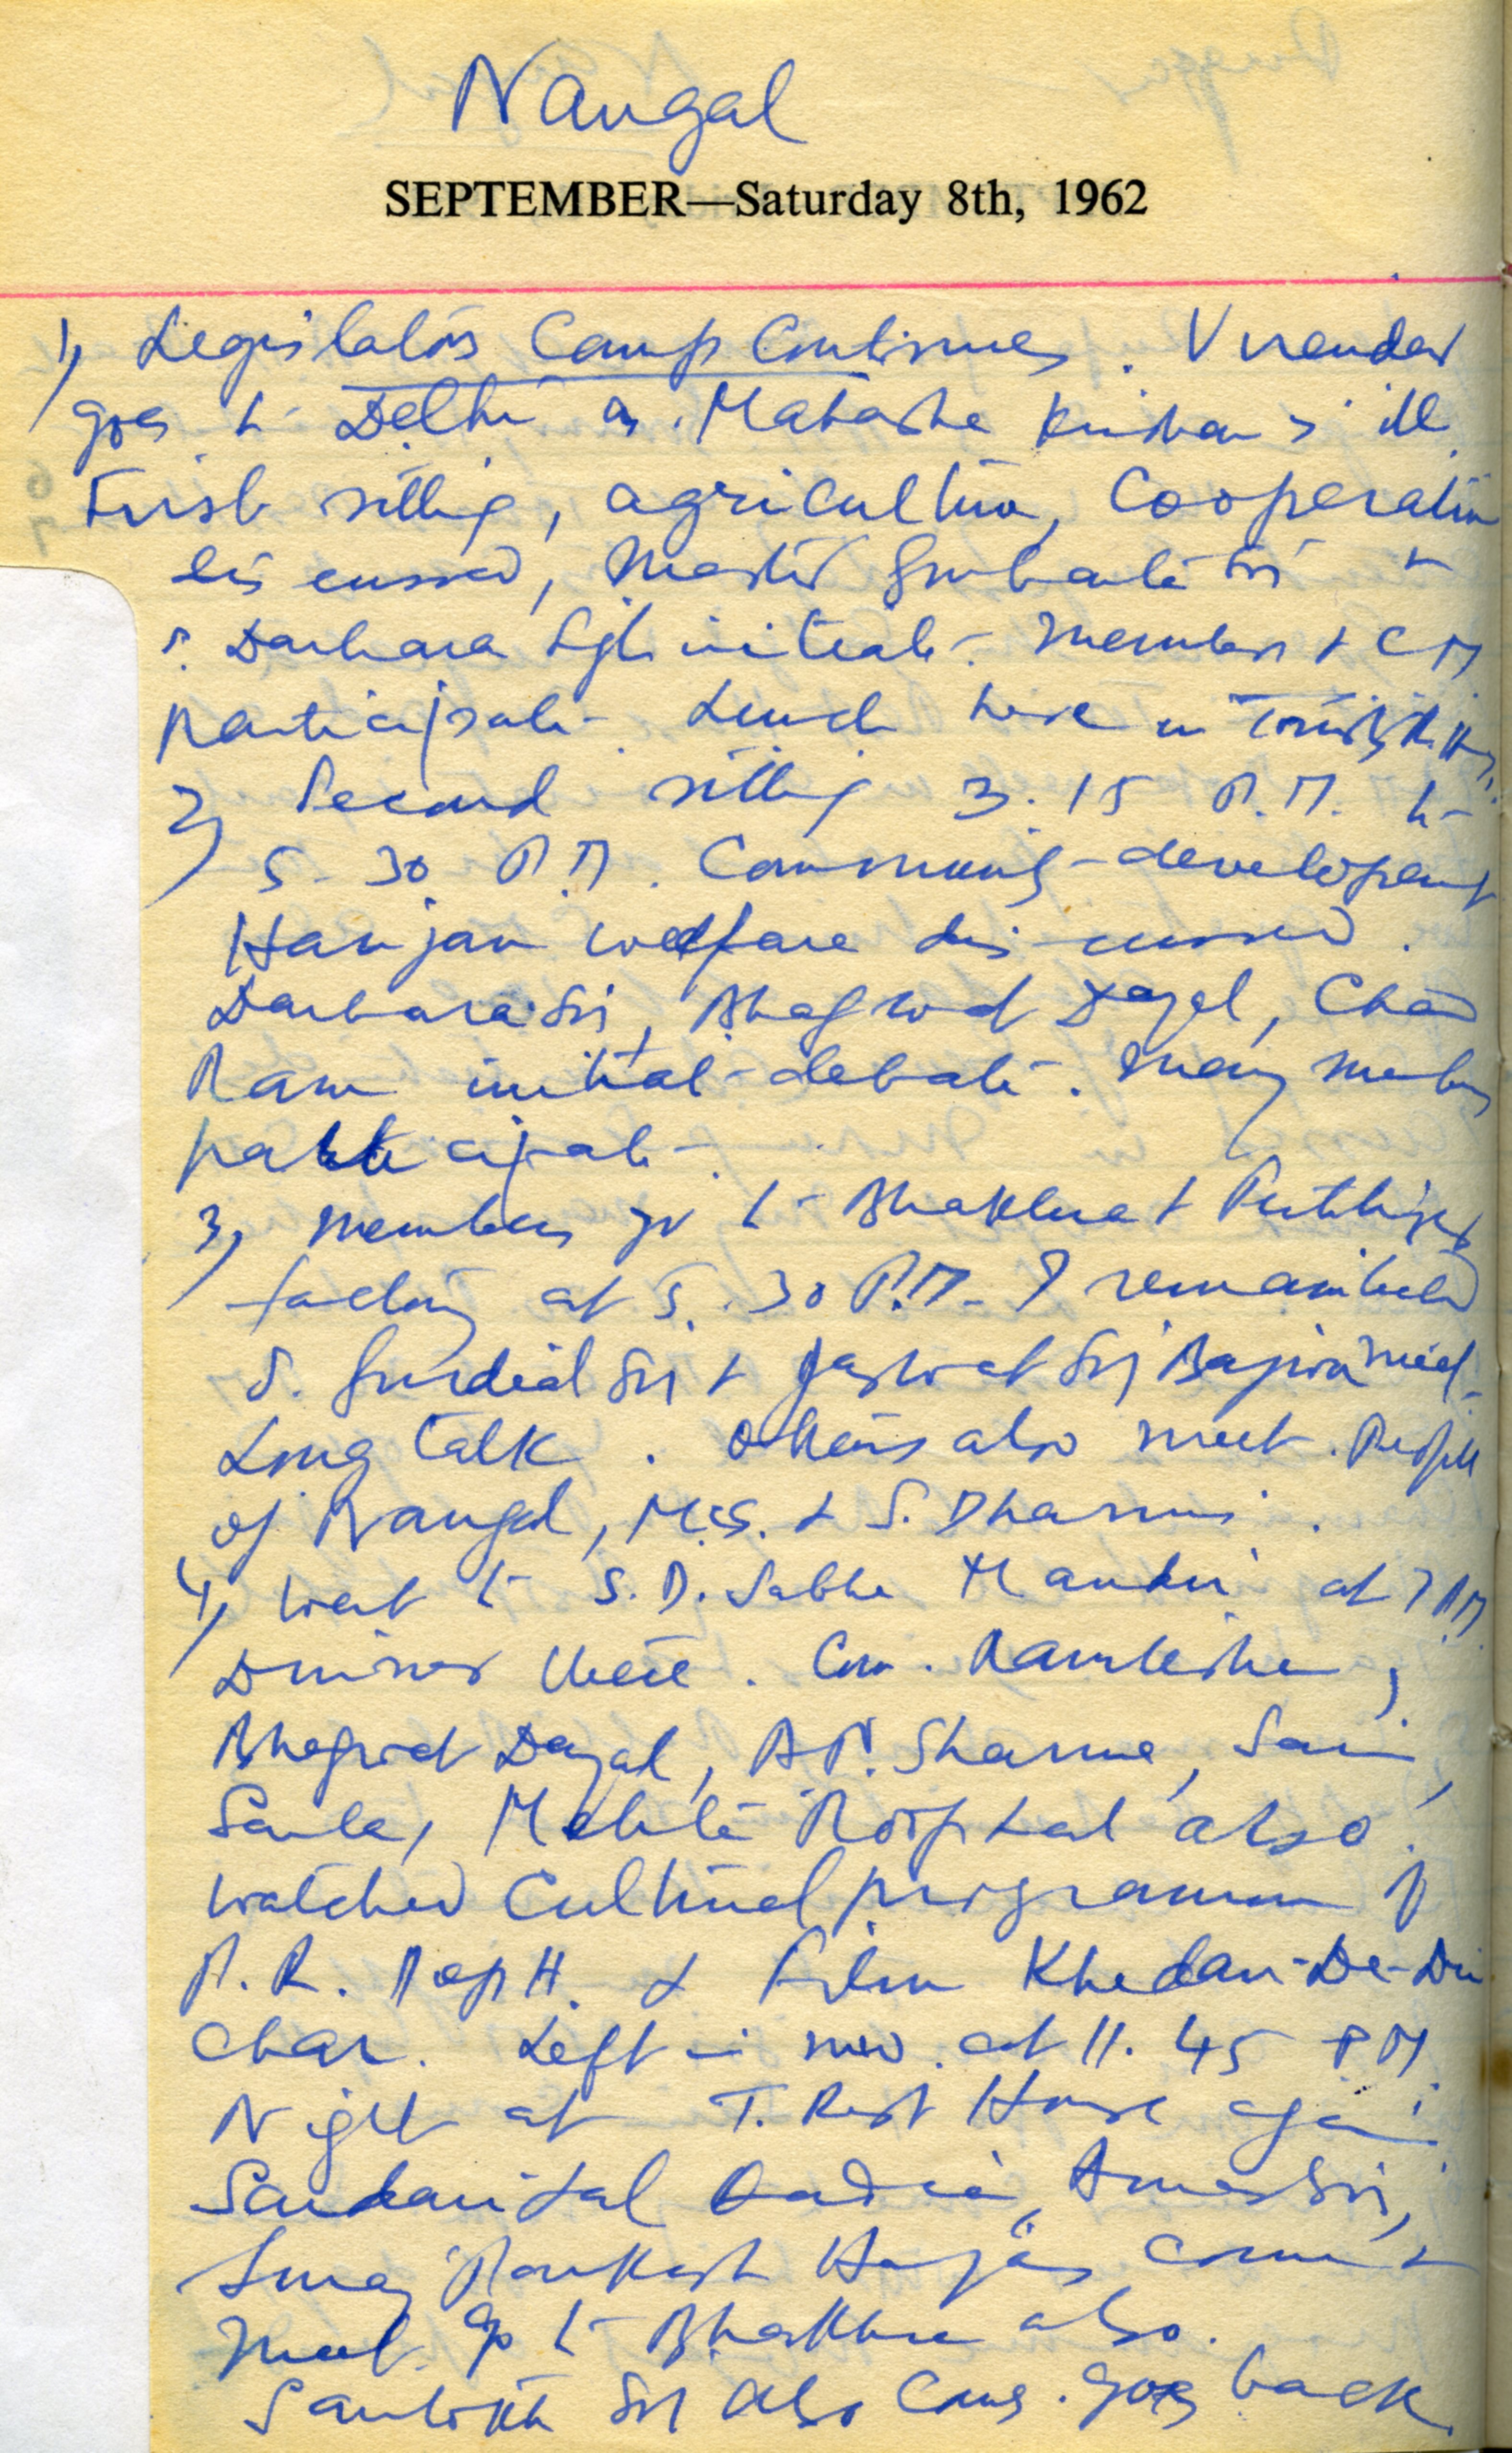 Nangal
SEPTEMBER—Saturday 8th, 1962
1) Legislators Camp Continues. Virender
goes to Delhi as Mahashe Krishan is ill.
First sitting, agriculture, Cooperation
discussed, Master Gurbanta Sri &
S. Darbara Sgh initiate. Members & CM
participate. Lunch here in Tourist R.H.
2) Second sitting 3.15 P.M. to
5-30 P.M. Community development
Harijan welfare discussed.
Darbara Sri, Bhagwat Dayal, Chand
Ram initiate debate. Many members
participate.
3) Members go to Bhakhra & Fertilizer
factory at 5.30 P.M. I remain behind
S. Gurdial Sri & Jaswat Sri Bajwa meet
Long talk. Others also meet. People
of Nangal, M.S. & S. Dharmi.
4) Went to S.D. Sabha Mandir at 7 PM
Dinner there. Com. Ramkishen,
Bhagwat Dayal, Sharma, Saini,
also.
Watched Cultural programme of
P.R. Deptt. & Film Khedan-De-Din
Char. Left in mid. at 11.45 PM
Night at T. Rest House again.
Lal Amar Sri,
come &
meet. go to Bhakhra also.
Santokh Sri also comes. goes back.